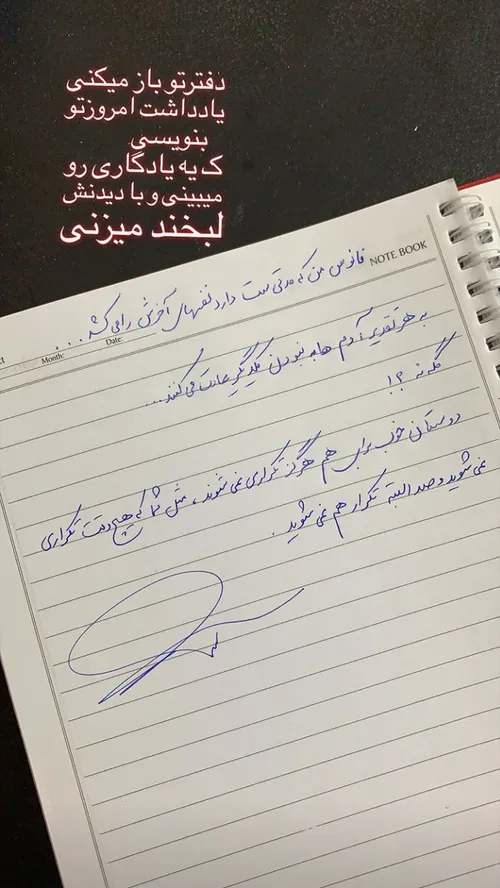 دفترتو باز میکنی
یادداشت امروزتو
بنویسی
ک یه یادگاری رو
میبینی و با دیدنش
لبخند میزنی
NOTE BOOK
فانوس من که مدتی ست دارد نفسهای آخرش را می کشد ...
Month:
Date:
به هر تقدیر آدم ها به نبودن یکدیگر عادت می کنند...
مگه نه ؟!
دوستان خوب برای هم هرگز تکراری نمی شوند، مثل شما که هیچ وقت تکراری
نمی شوید و صد البته تکرار هم نمی شوید .